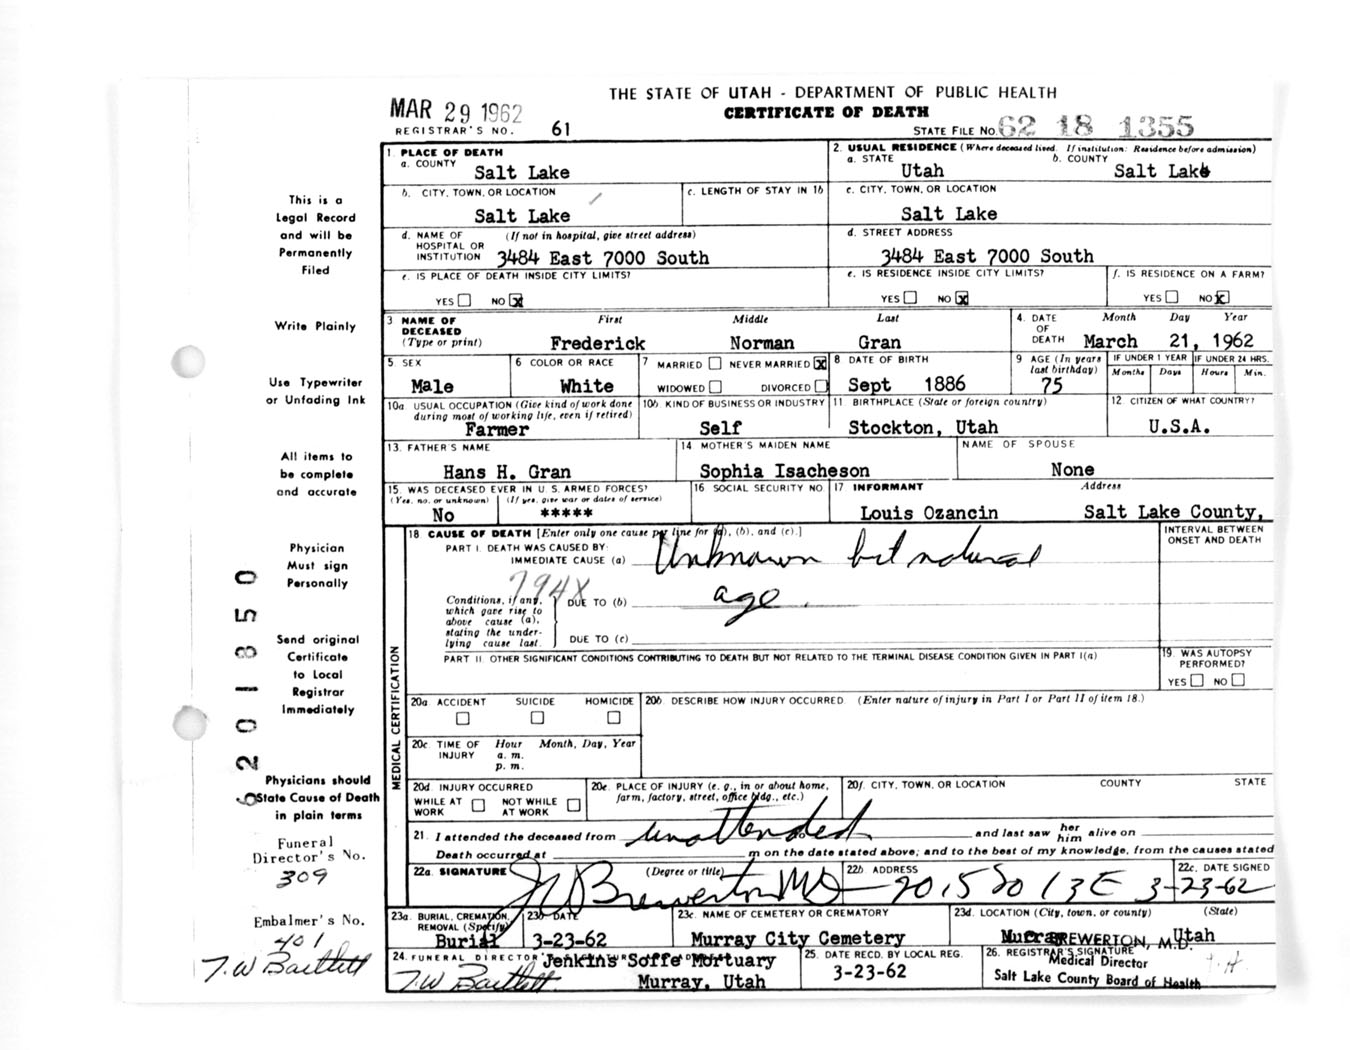 THE STATE OF UTAH - DEPARTMENT OF PUBLIC HEALTH
CERTIFICATE OF DEATH
MAR 29 1962
REGISTRAR'S NO. 61
STATE FILE NO. 62 18 1355
This is a
Legal Record
and will be
Permanently
Filed
Write Plainly
Use Typewriter
or Unfading Ink
All items to
be complete
and accurate
Physician
Must sign
Personally
Send original
Certificate
to Local
Registrar
Immediately
Physicians should
State Cause of Death
in plain terms
Funeral
Director's No.
309
Embalmer's No.
401
T.W Bartlett
6201350
1. PLACE OF DEATH
a. COUNTY
Salt Lake
2. USUAL RESIDENCE (Where deceased lived. If institution: Residence before admission)
a. STATE b. COUNTY
Utah Salt Lake
b. CITY, TOWN, OR LOCATION
Salt Lake
c. LENGTH OF STAY IN 1b
c. CITY, TOWN, OR LOCATION
Salt Lake
d. NAME OF (If not in hospital, give street address)
HOSPITAL OR
INSTITUTION 3484 East 7000 South
d. STREET ADDRESS
3484 East 7000 South
e. IS PLACE OF DEATH INSIDE CITY LIMITS?
YES NO X
e. IS RESIDENCE INSIDE CITY LIMITS?
YES NO X
f. IS RESIDENCE ON A FARM?
YES NO X
3 NAME OF First Middle Last
DECEASED
(Type or print) Frederick Norman Gran
4. DATE Month Day Year
OF
DEATH March 21, 1962
5. SEX
Male
6 COLOR OR RACE
White
7 MARRIED NEVER MARRIED X
WIDOWED DIVORCED
8 DATE OF BIRTH
Sept 1886
9 AGE (In years
last birthday)
75
IF UNDER 1 YEAR IF UNDER 24 HRS.
Months Days Hours Min.
10a USUAL OCCUPATION (Give kind of work done
during most of working life, even if retired)
Farmer
10b. KIND OF BUSINESS OR INDUSTRY
Self
11 BIRTHPLACE (State or foreign country)
Stockton, Utah
12 CITIZEN OF WHAT COUNTRY?
U.S.A.
13. FATHER'S NAME
Hans H. Gran
14 MOTHER'S MAIDEN NAME
Sophia Isacheson
NAME OF SPOUSE
None
15. WAS DECEASED EVER IN U. S. ARMED FORCES?
(Yes, no, or unknown) (If yes, give war or dates of service)
No *****
16 SOCIAL SECURITY NO.
17 INFORMANT Address
Louis Ozancin Salt Lake County,
MEDICAL CERTIFICATION
18 CAUSE OF DEATH [Enter only one cause per line for (a), (b), and (c).]
INTERVAL BETWEEN
ONSET AND DEATH
PART I. DEATH WAS CAUSED BY:
IMMEDIATE CAUSE (a) Unknown but natural
794X
Conditions, if any,
which gave rise to
above cause (a),
stating the under-
lying cause last.
DUE TO (b) age.
DUE TO (c)
PART II. OTHER SIGNIFICANT CONDITIONS CONTRIBUTING TO DEATH BUT NOT RELATED TO THE TERMINAL DISEASE CONDITION GIVEN IN PART I(a)
19. WAS AUTOPSY
PERFORMED?
YES NO
20a. ACCIDENT SUICIDE HOMICIDE
20b. DESCRIBE HOW INJURY OCCURRED. (Enter nature of injury in Part I or Part II of item 18.)
20c. TIME OF Hour Month, Day, Year
INJURY a. m.
p. m.
20d INJURY OCCURRED
WHILE AT NOT WHILE
WORK AT WORK
20e. PLACE OF INJURY (e. g., in or about home,
farm, factory, street, office bldg., etc.)
20f. CITY, TOWN, OR LOCATION COUNTY STATE
21. I attended the deceased from unattended to and last saw her him alive on
Death occurred at m on the date stated above; and to the best of my knowledge, from the causes stated
22a. SIGNATURE (Degree or title)
Brewerton MD
22b ADDRESS
2015 So 13 E
22c. DATE SIGNED
3-23-62
23a. BURIAL, CREMATION,
REMOVAL (Specify)
Burial
23b DATE
3-23-62
23c. NAME OF CEMETERY OR CREMATORY
Murray City Cemetery
23d. LOCATION (City, town, or county) (State)
Murray Utah
24. FUNERAL DIRECTOR'S SIGNATURE
Jenkins Soffe Mortuary
T.W Bartlett Murray, Utah
25. DATE RECD. BY LOCAL REG.
3-23-62
26. REGISTRAR'S SIGNATURE
BREWERTON, M.D.
Medical Director
Salt Lake County Board of Health